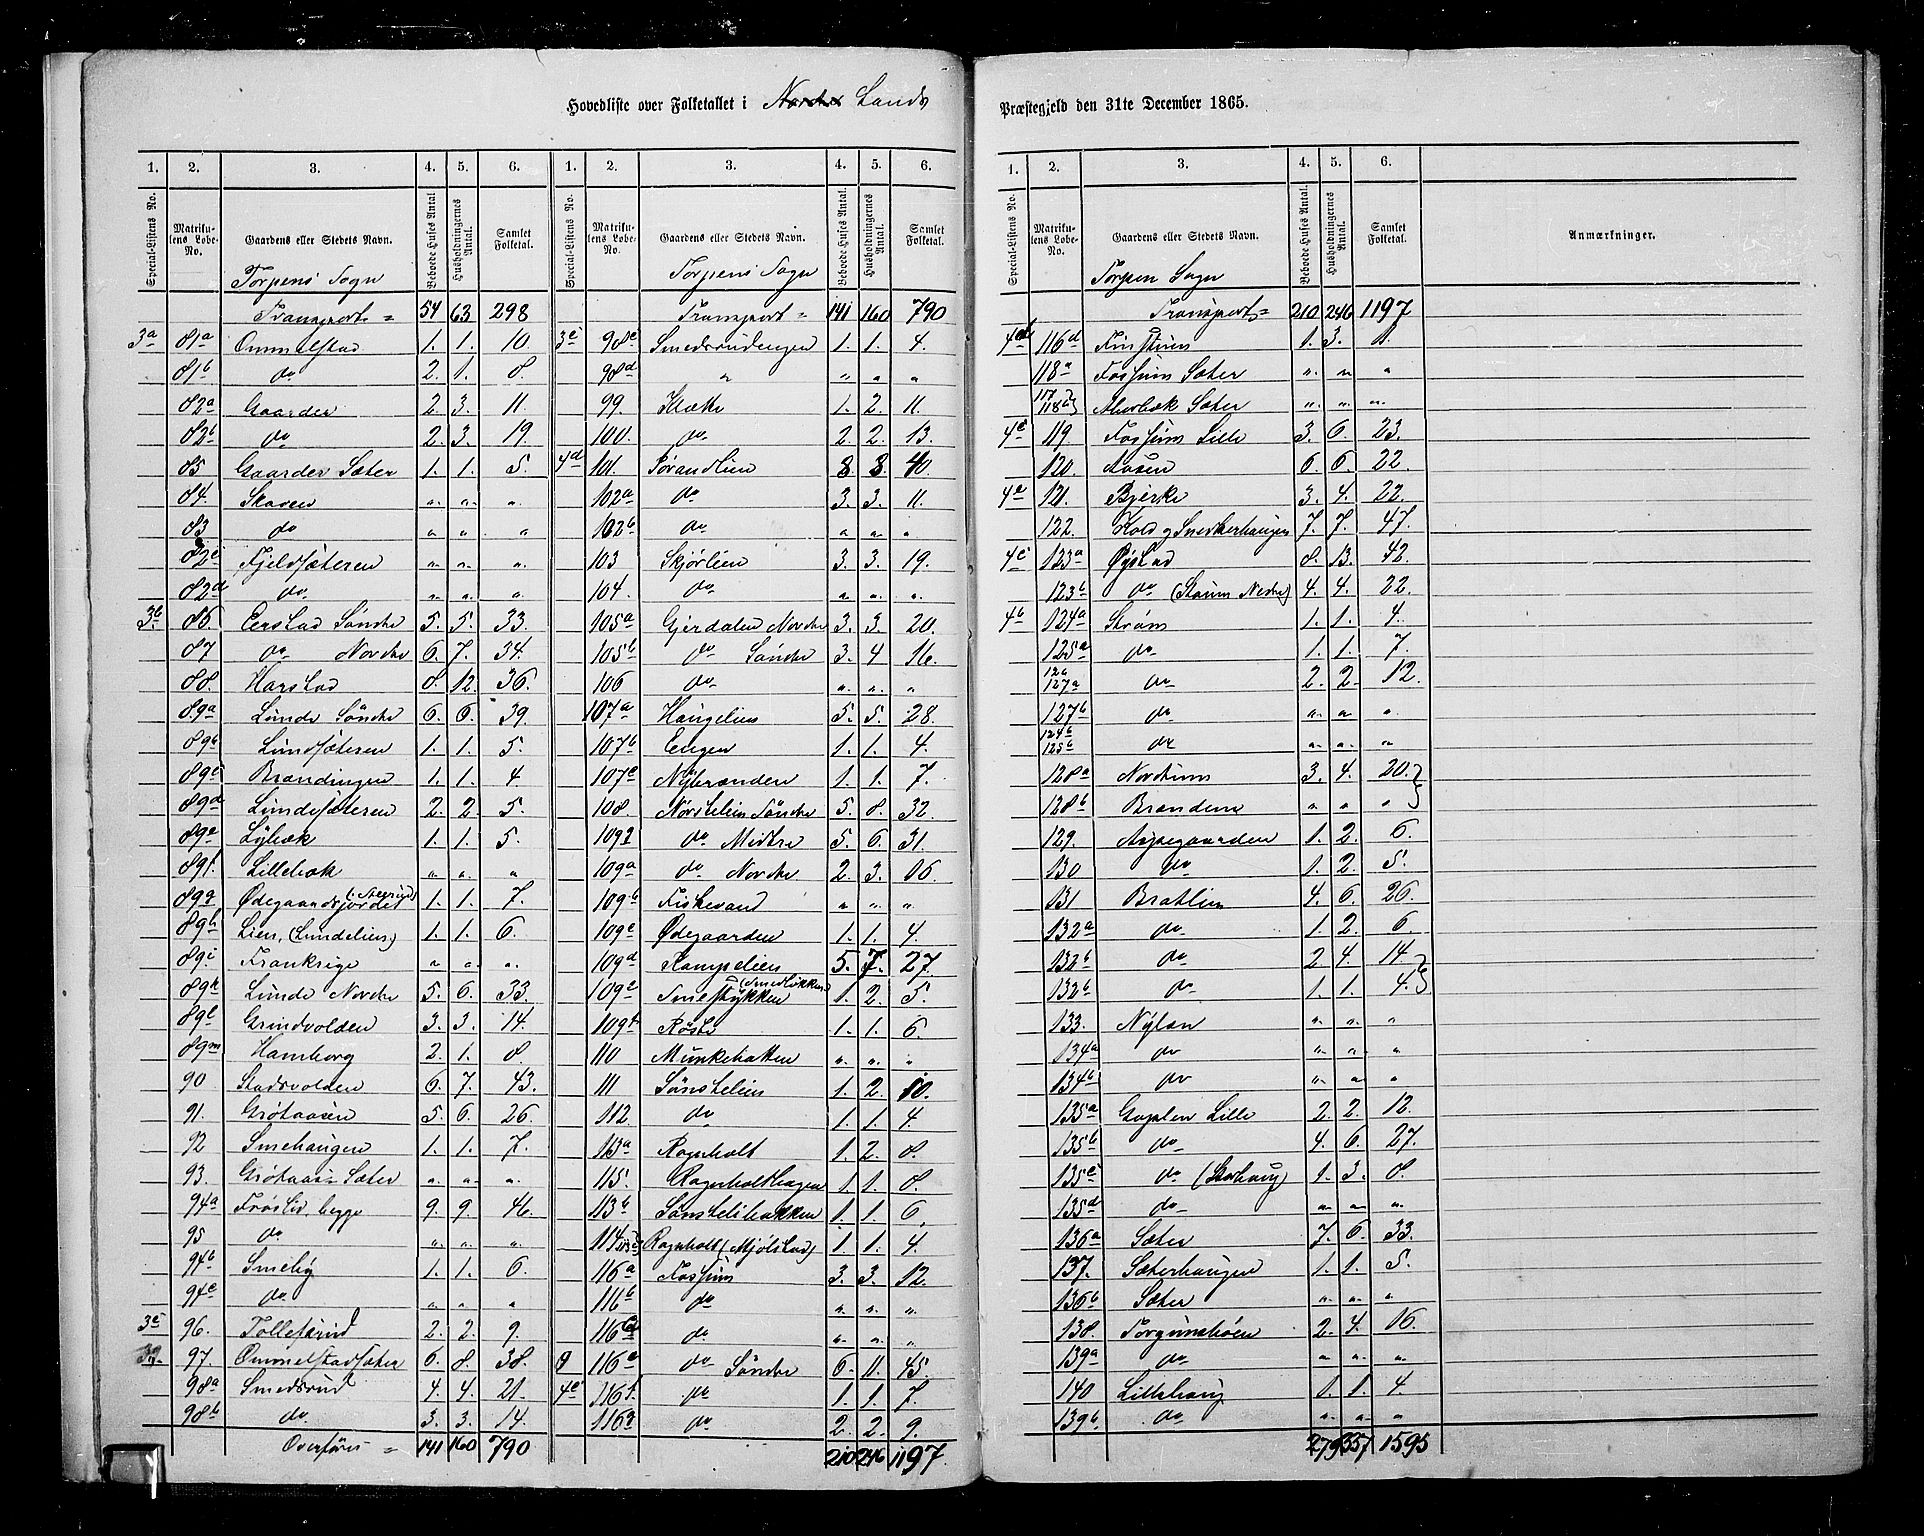 Hovedliste over Folketallet i Nordre Lands Præstegjeld den 31te December 1865.
1. 2. 3. 4. 5. 6. 1. 2. 3. 4. 5. 6.
Special-Listens No. Matrikulens Løbe-No. Gaardens eller Stedets Navn. Beboede Huses Antal. Husholdningernes Antal. Samlet Folketal. Special-Listens No. Matrikulens Løbe-No. Gaardens eller Stedets Navn. Beboede Huses Antal. Husholdningernes Antal. Samlet Folketal.
Torpens Sogn
Transport = 54 63 298
3a 81a Ommelstad 1. 1. 10.
81b do 2. 1. 8.
82a Gaarder 2. 3. 11.
82b do 2. 3. 19.
85 Gaarder Sæter 1. 1. 5.
84. Skoven " " "
83 do " " "
82c Fjeldsæteren " " "
82d do " " "
3b 86. Eerstad Söndre 5. 5. 33.
87 do Nordre 6. 7. 34.
88. Harstad 8. 12. 36.
89a Lunde Söndre 6. 6. 39.
89b Lundsæteren 1. 1. 5.
89c Brændingen 1. 1. 4
89d Lundesæteren 2. 2. 5.
89e Lybæk 1. 1. 5.
89f. Lillebæk " " "
89g Ødegaardsjordet 1. 1. 7.
89h Lien, (Lundelien) 1. 1. 6.
89i Frankrige " " "
89k Lunde Nordre 5. 6. 33.
89l Grindvolden 3. 3. 14.
89m Hamborg 2. 1. 8.
90 Stadsvolden 6. 7. 43.
91. Grötaasen 5. 6. 26.
92 Smehaugen 1. 1. 7.
93. Grötaas Sæter " " "
94a Fröslid, begge 9. 9. 46.
95 do " " "
94b Smeby 1. 1. 6.
94c do " " "
3c 96. Tollefsrud 2. 2. 9.
97. Ommelstadsæter 6. 8. 38.
98a Smedsrud 4. 4. 21.
98b do. 3. 3. 14.
Overføres = 141 160 790
Torpens Sogn
Transport = 141 160 790
3c 98c Smedsrudengen 1. 1. 4.
98d " " " "
99. Klække 1. 2. 11.
100. do 2. 2. 13.
4d 101. Sørandlien 8 8. 40.
102a do 3. 3. 11.
102b do " " "
103 Skjörlien 3. 3. 19.
104. do " " "
105a Gjerdalen Nordre 3. 3. 20.
105b do Söndre 3. 4 16.
106 do " " "
107a Haugelien 5. 5. 28.
107b Engen 1. 1. 4.
107c Nybrænden 1. 1. 7.
108. Nörstelien Söndre 5. 8. 32.
do Midtre 5. 6. 31.
109a do Nordre 2. 3. 16.
109b Fiskevand " " "
109c Ødegaarden 1. 1. 4.
109d Rompelien 5. 7. 27.
109e Smestykken (Smedlökken) 1. 2. 5.
109f Røste 1. 1. 6.
110 Munkehatten " " "
111 Sönstelien 1. 2. 10.
112. do 1. 1. 4
113a Rognholt 1. 2. 8.
115. Rognholthagen 1. 1. 8.
113b Sönstelibakken 1. 1. 6.
114 Rognholt (Mjölstad) 1. 1. 4.
116a Fossum 3. 3. 12.
116b do " " "
do " " "
116e do Söndre 6. 11. 45.
4c 116f. do 1. 1. 7.
116g do 2. 2. 9.
210 246 1197
1. 2. 3. 4. 5. 6.
Special-Listens No. Matrikulens Løbe-No. Gaardens eller Stedets Navn. Beboede Huses Antal. Husholdningernes Antal. Samlet Folketal. Anmærkninger.
Torpen Sogn
Transport = 210 246 1197
116d 1. 3.
118a Fossum Sæter " " "
117 118b Aurbæk Sæter " " "
4c 119. Fossum Lille 3. 6. 23.
120. Aasen 6. 6. 22.
4a 121. Bjerke 3. 4. 22.
122. Kold og Snekkerhaugen 7. 7. 47.
4c 123a Øystad 8. 13. 42.
123b do (Staum Nedre) 4. 4. 22.
4b 124a Strøm 1. 1. 4.
125a do 1. 1. 7.
126 127a do 2. 2. 12.
127b do " " "
124b 125b do " " "
128a Nordrum 3. 4. 20.
128b Brændene " " "
129. Aspegaarden 1. 2. 6.
130 do 1. 2. 5.
131 Bratlien 4. 6. 26.
132a do 1. 2. 6
132b do 2 4. 14.
132b do 1. 1. 4.
133. Nylan " " "
134a do " " "
134b do " " "
135a Goplen Lille 2. 2. 12.
135b do 4. 6. 27.
135c do (Storhaug) 1. 3. 8.
135d do " " "
136a Sæter 7. 6. 33.
137. Sæterhaugen 1. 1. 5.
136b Sæter " " "
138. Torgunshöen 2. 4. 16.
139a do " " "
140 Lillehaug 1. 1. 4.
139b do " " "
279 357 1595